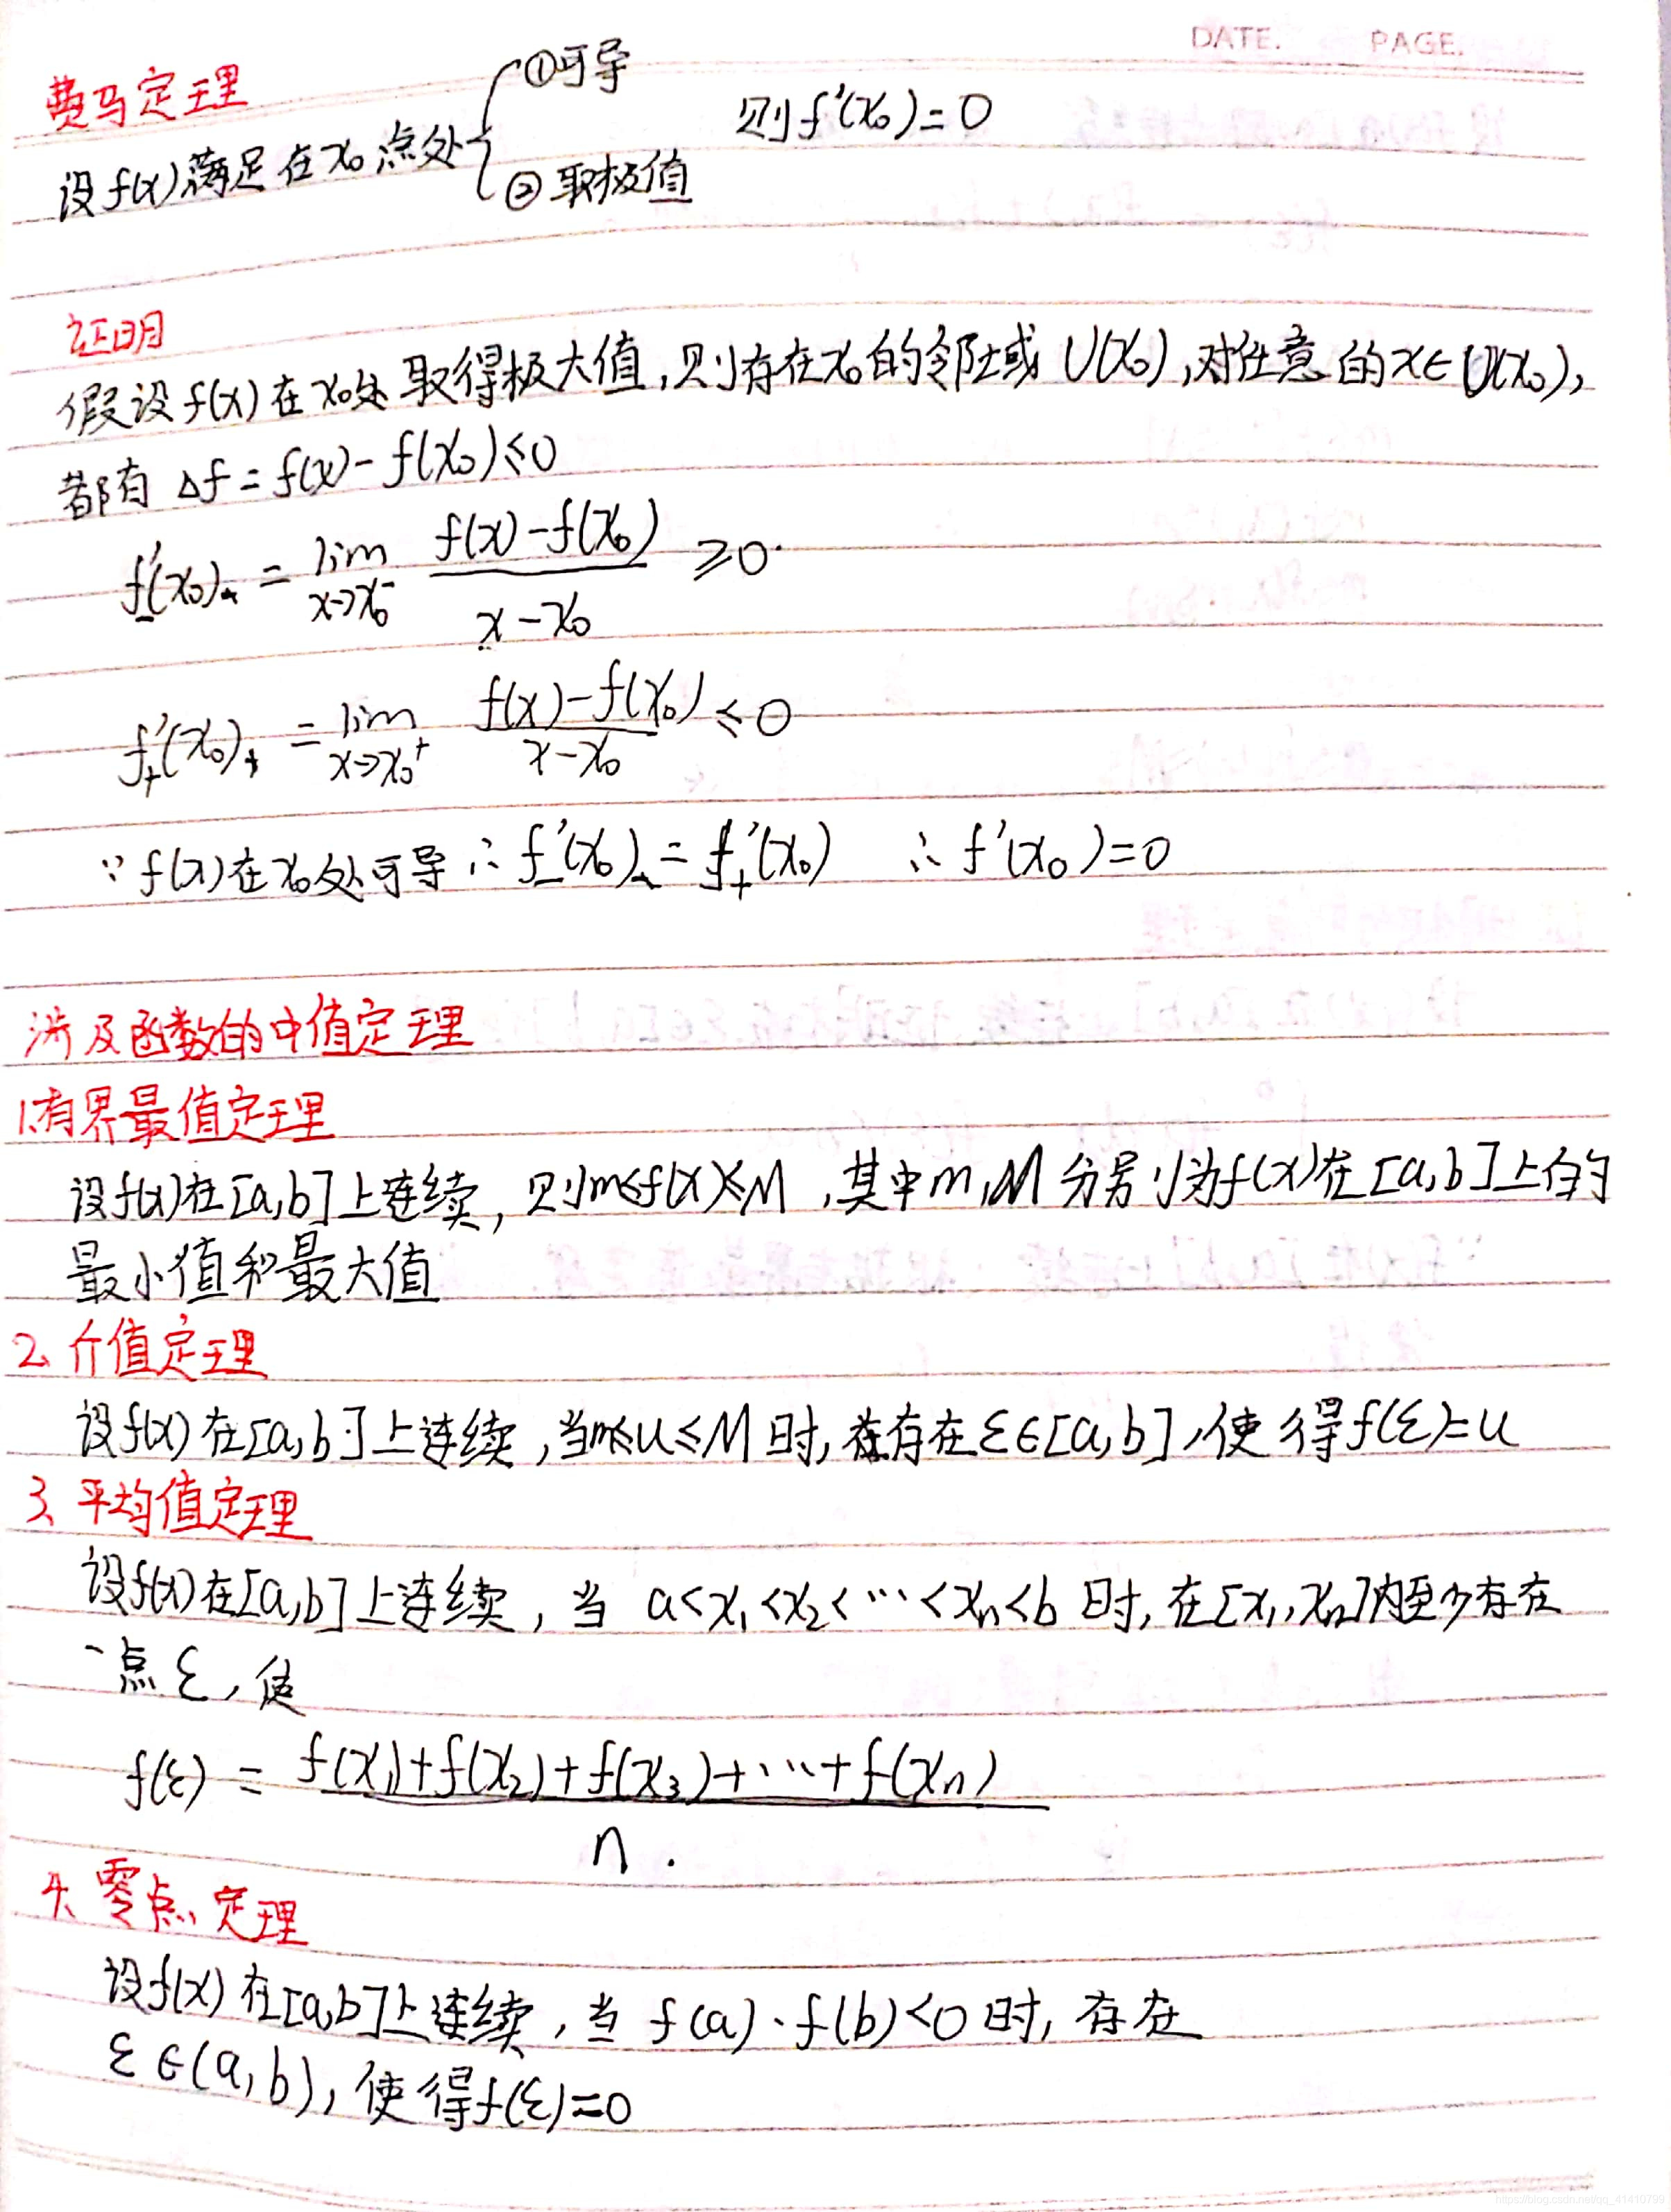 DATE. PAGE.
费马定理
设f(x)满足在x₀点处{①可导 ②取极值 则f'(x₀)=0
证明
假设f(x)在x₀处取得极大值,则存在x₀的邻域U(x₀),对任意的x∈U(x₀),
都有 Δf=f(x)-f(x₀)≤0
f'₋(x₀) = lim x→x₀⁻ (f(x)-f(x₀))/(x-x₀) ≥0
f'₊(x₀) = lim x→x₀⁺ (f(x)-f(x₀))/(x-x₀) ≤0
∵f(x)在x₀处可导∴f'₋(x₀)=f'₊(x₀) ∴f'(x₀)=0
涉及函数的中值定理
1.有界最值定理
设f(x)在[a,b]上连续,则m≤f(x)≤M,其中m,M分别为f(x)在[a,b]上的
最小值和最大值
2、介值定理
设f(x)在[a,b]上连续,当m≤u≤M时,存在ε∈[a,b],使得f(ε)=u
3、平均值定理
设f(x)在[a,b]上连续,当 a<x₁<x₂<…<xₙ<b 时,在[x₁,xₙ]内至少存在
一点ε,使
f(ε) = (f(x₁)+f(x₂)+f(x₃)+…+f(xₙ))/n.
4、零点定理
设f(x)在[a,b]上连续,当 f(a)·f(b)<0时,存在
ε∈(a,b),使得f(ε)=0
https://blog.csdn.net/qq_41410799